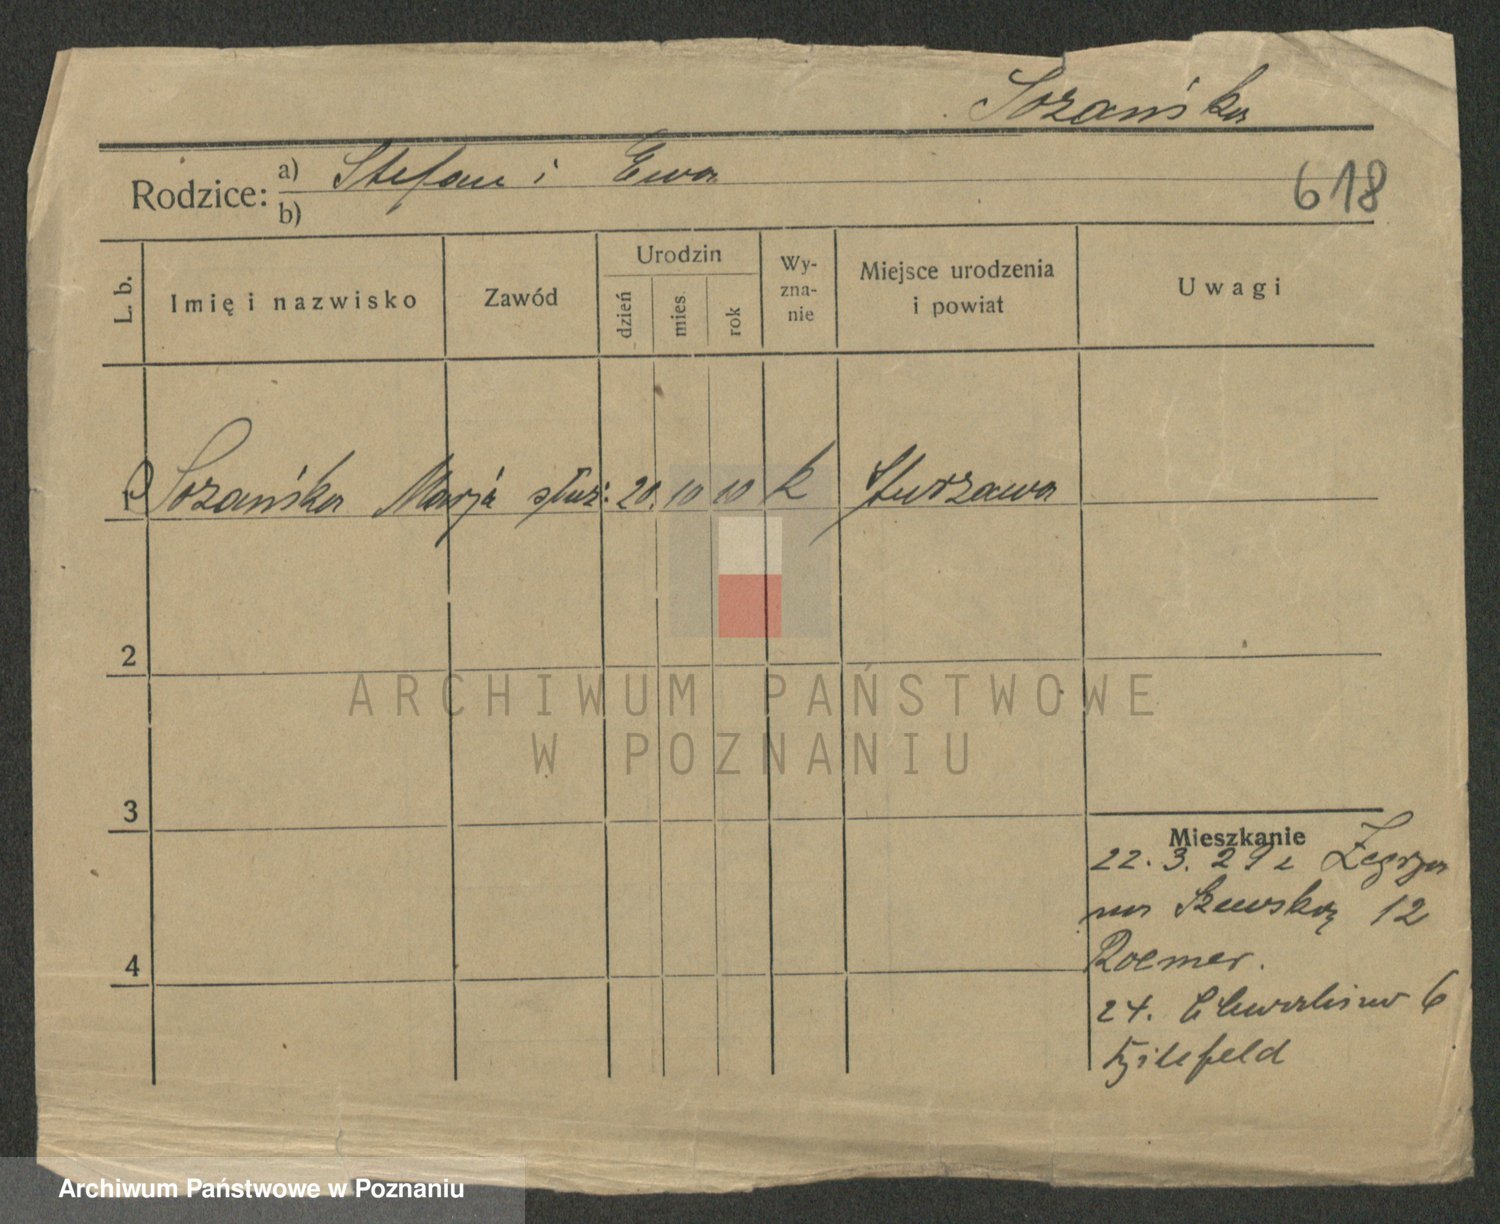 Sozańska
Rodzice: a) Stefan i Ewa
b)
618
L. b.
Imię i nazwisko
Zawód
Urodzin
dzień
mies.
rok
Wy-
zna-
nie
Miejsce urodzenia
i powiat
Uwagi
1 Sozańska Marja służ: 20. 10 10 k Sturzawa
2
3
4
Mieszkanie
22. 3. 29 z Zegrza
na Szewską 12
Roemer.
24. 6
ARCHIWUM PAŃSTWOWE
W POZNANIU
Archiwum Państwowe w Poznaniu